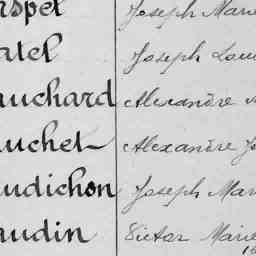 Joseph Marie
atel Joseph Loui
auchard Alexandre
auchet Alexandre Jo
audichon Joseph Mari
audin Victor Marie